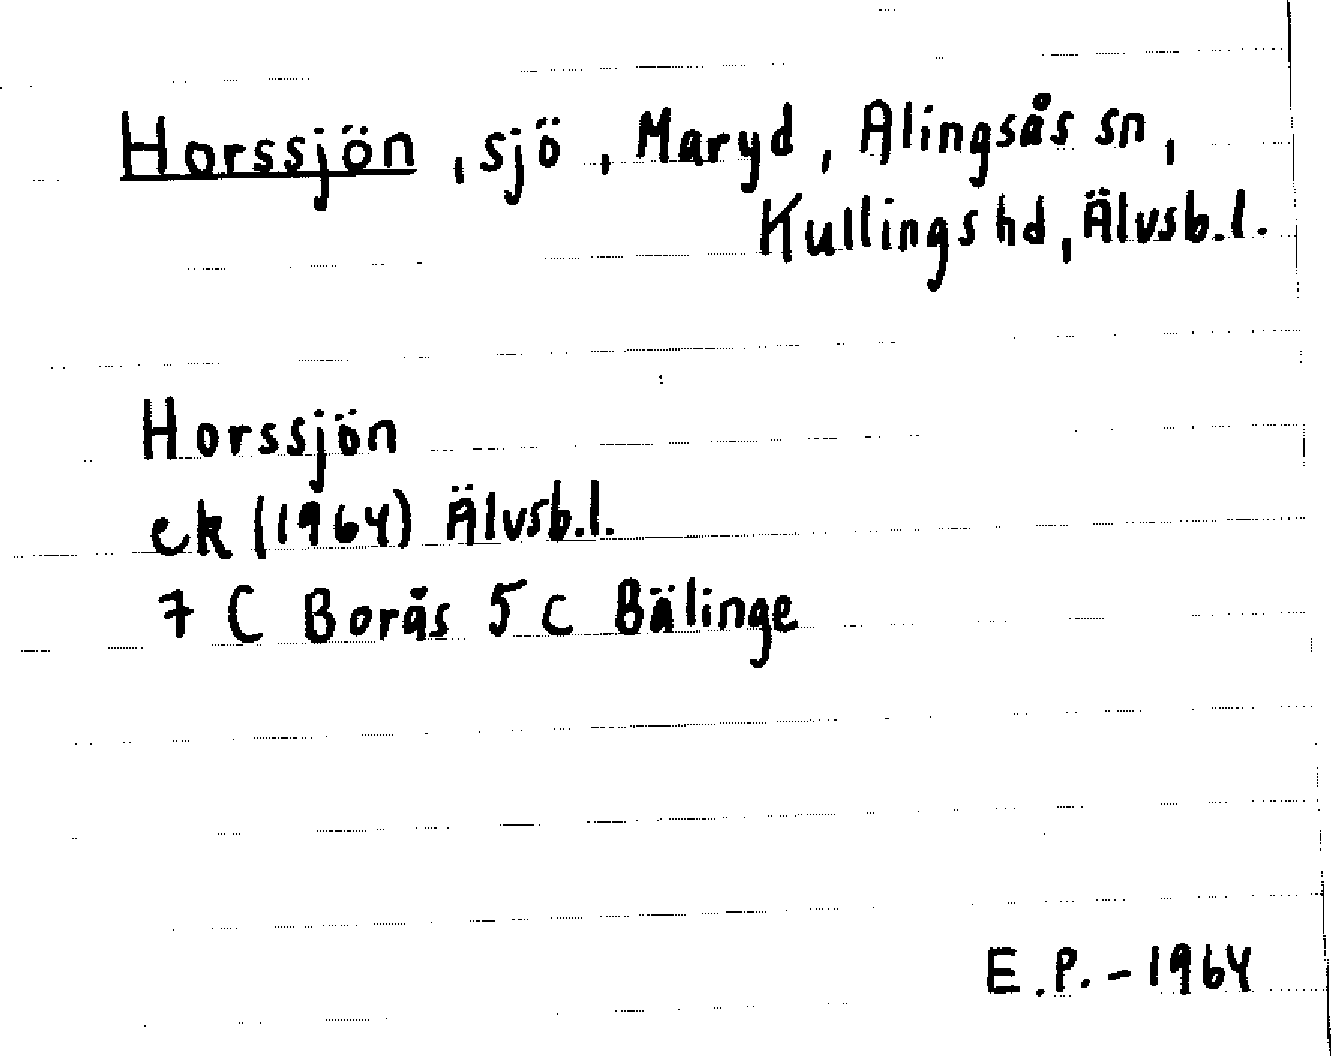 Horssjön, sjö, Maryd, Alingsås sn,
Kullings hd, Älvsb.l.
Horssjön
ek (1964) Älvsb.l.
7 C Borås 5 c Bälinge
E.P.-1964